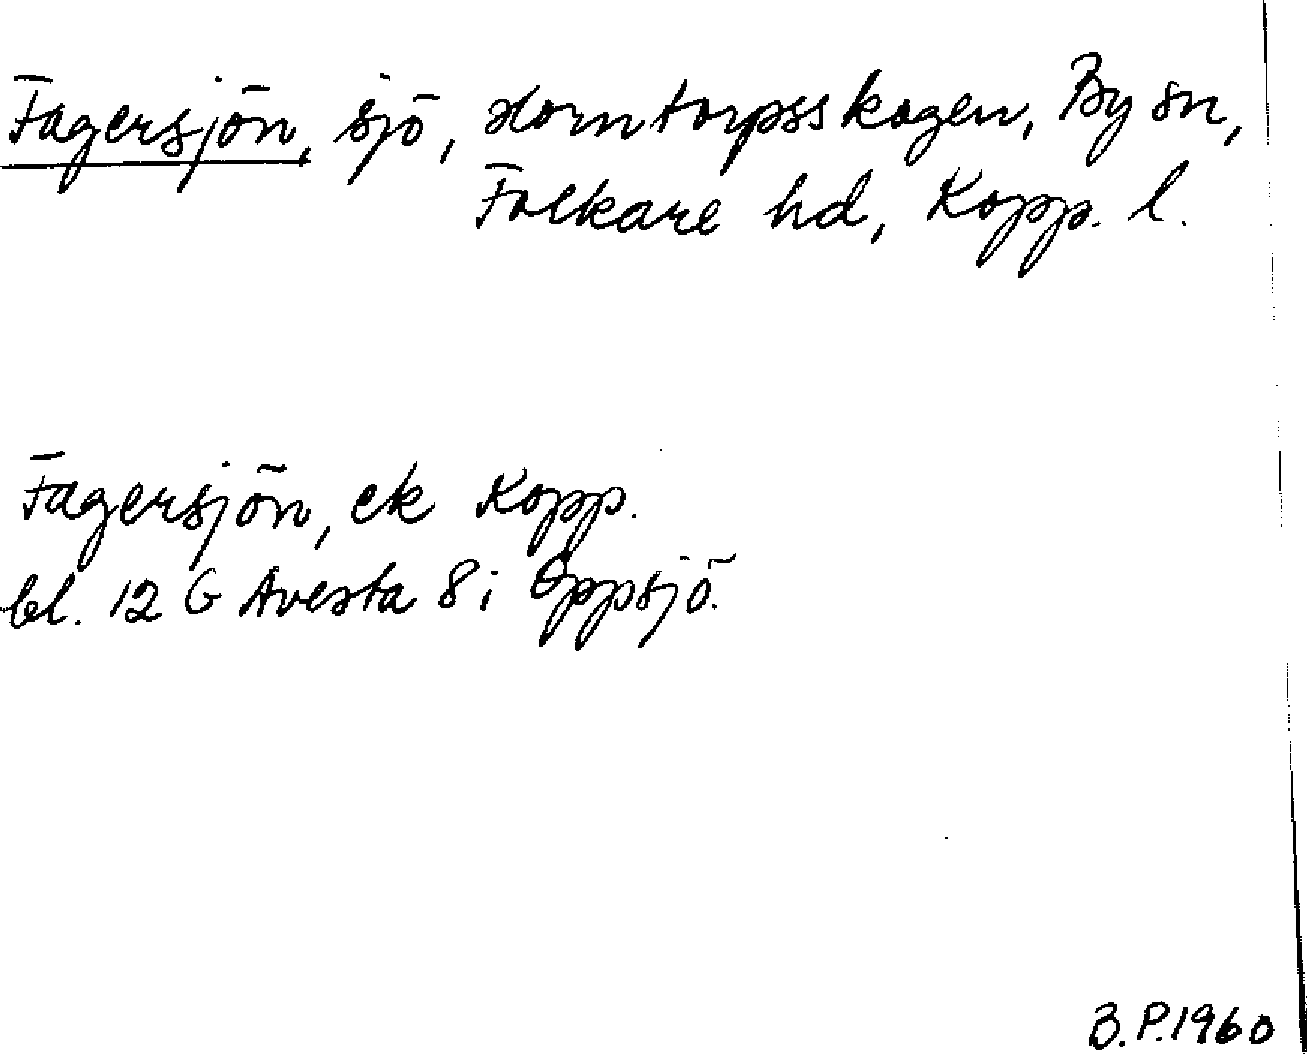 Fagersjön, sjö, Horntorpsskogen, By sn,
Folkare hd, Kopp. l.
Fagersjön, ek Kopp.
bl. 12 G Avesta 8 i Öppsjö.
B.P. 1960